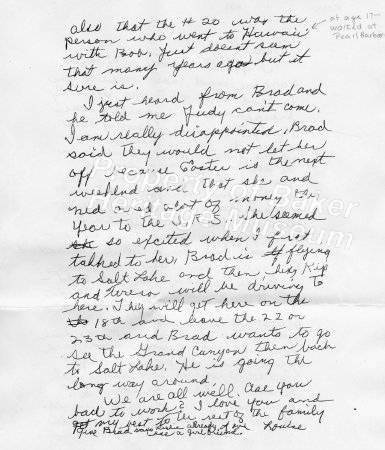 also that the # 20 was the
person who went to Hawaii
at age 17-
worked at
Pearl Harbor
with Bob. Just doesnt seem
that many years ago but it
sure is.
I just heard from Brad and
he told me Judy can't come.
I am really disappointed. Brad
said they would not let her
off because Easter is the next
weekend and that she and
Ned owed alot of money this
year to the I.R.S. She seemed
so excited when I first
talked to her. Brad is flying
to Salt Lake and then he, Kip
and Teresa will be driving to
here. They will get here on the
18th and leave the 22 or
23th and Brad wants to go
see the Grand Canyon then back
to Salt Lake. He is going the
long way around.
We are all well. Are you
back to work? I love you and
my best to the rest of the family
Brad says already
a girlfriend. Love Louise
Property of Baker
Heritage Museum